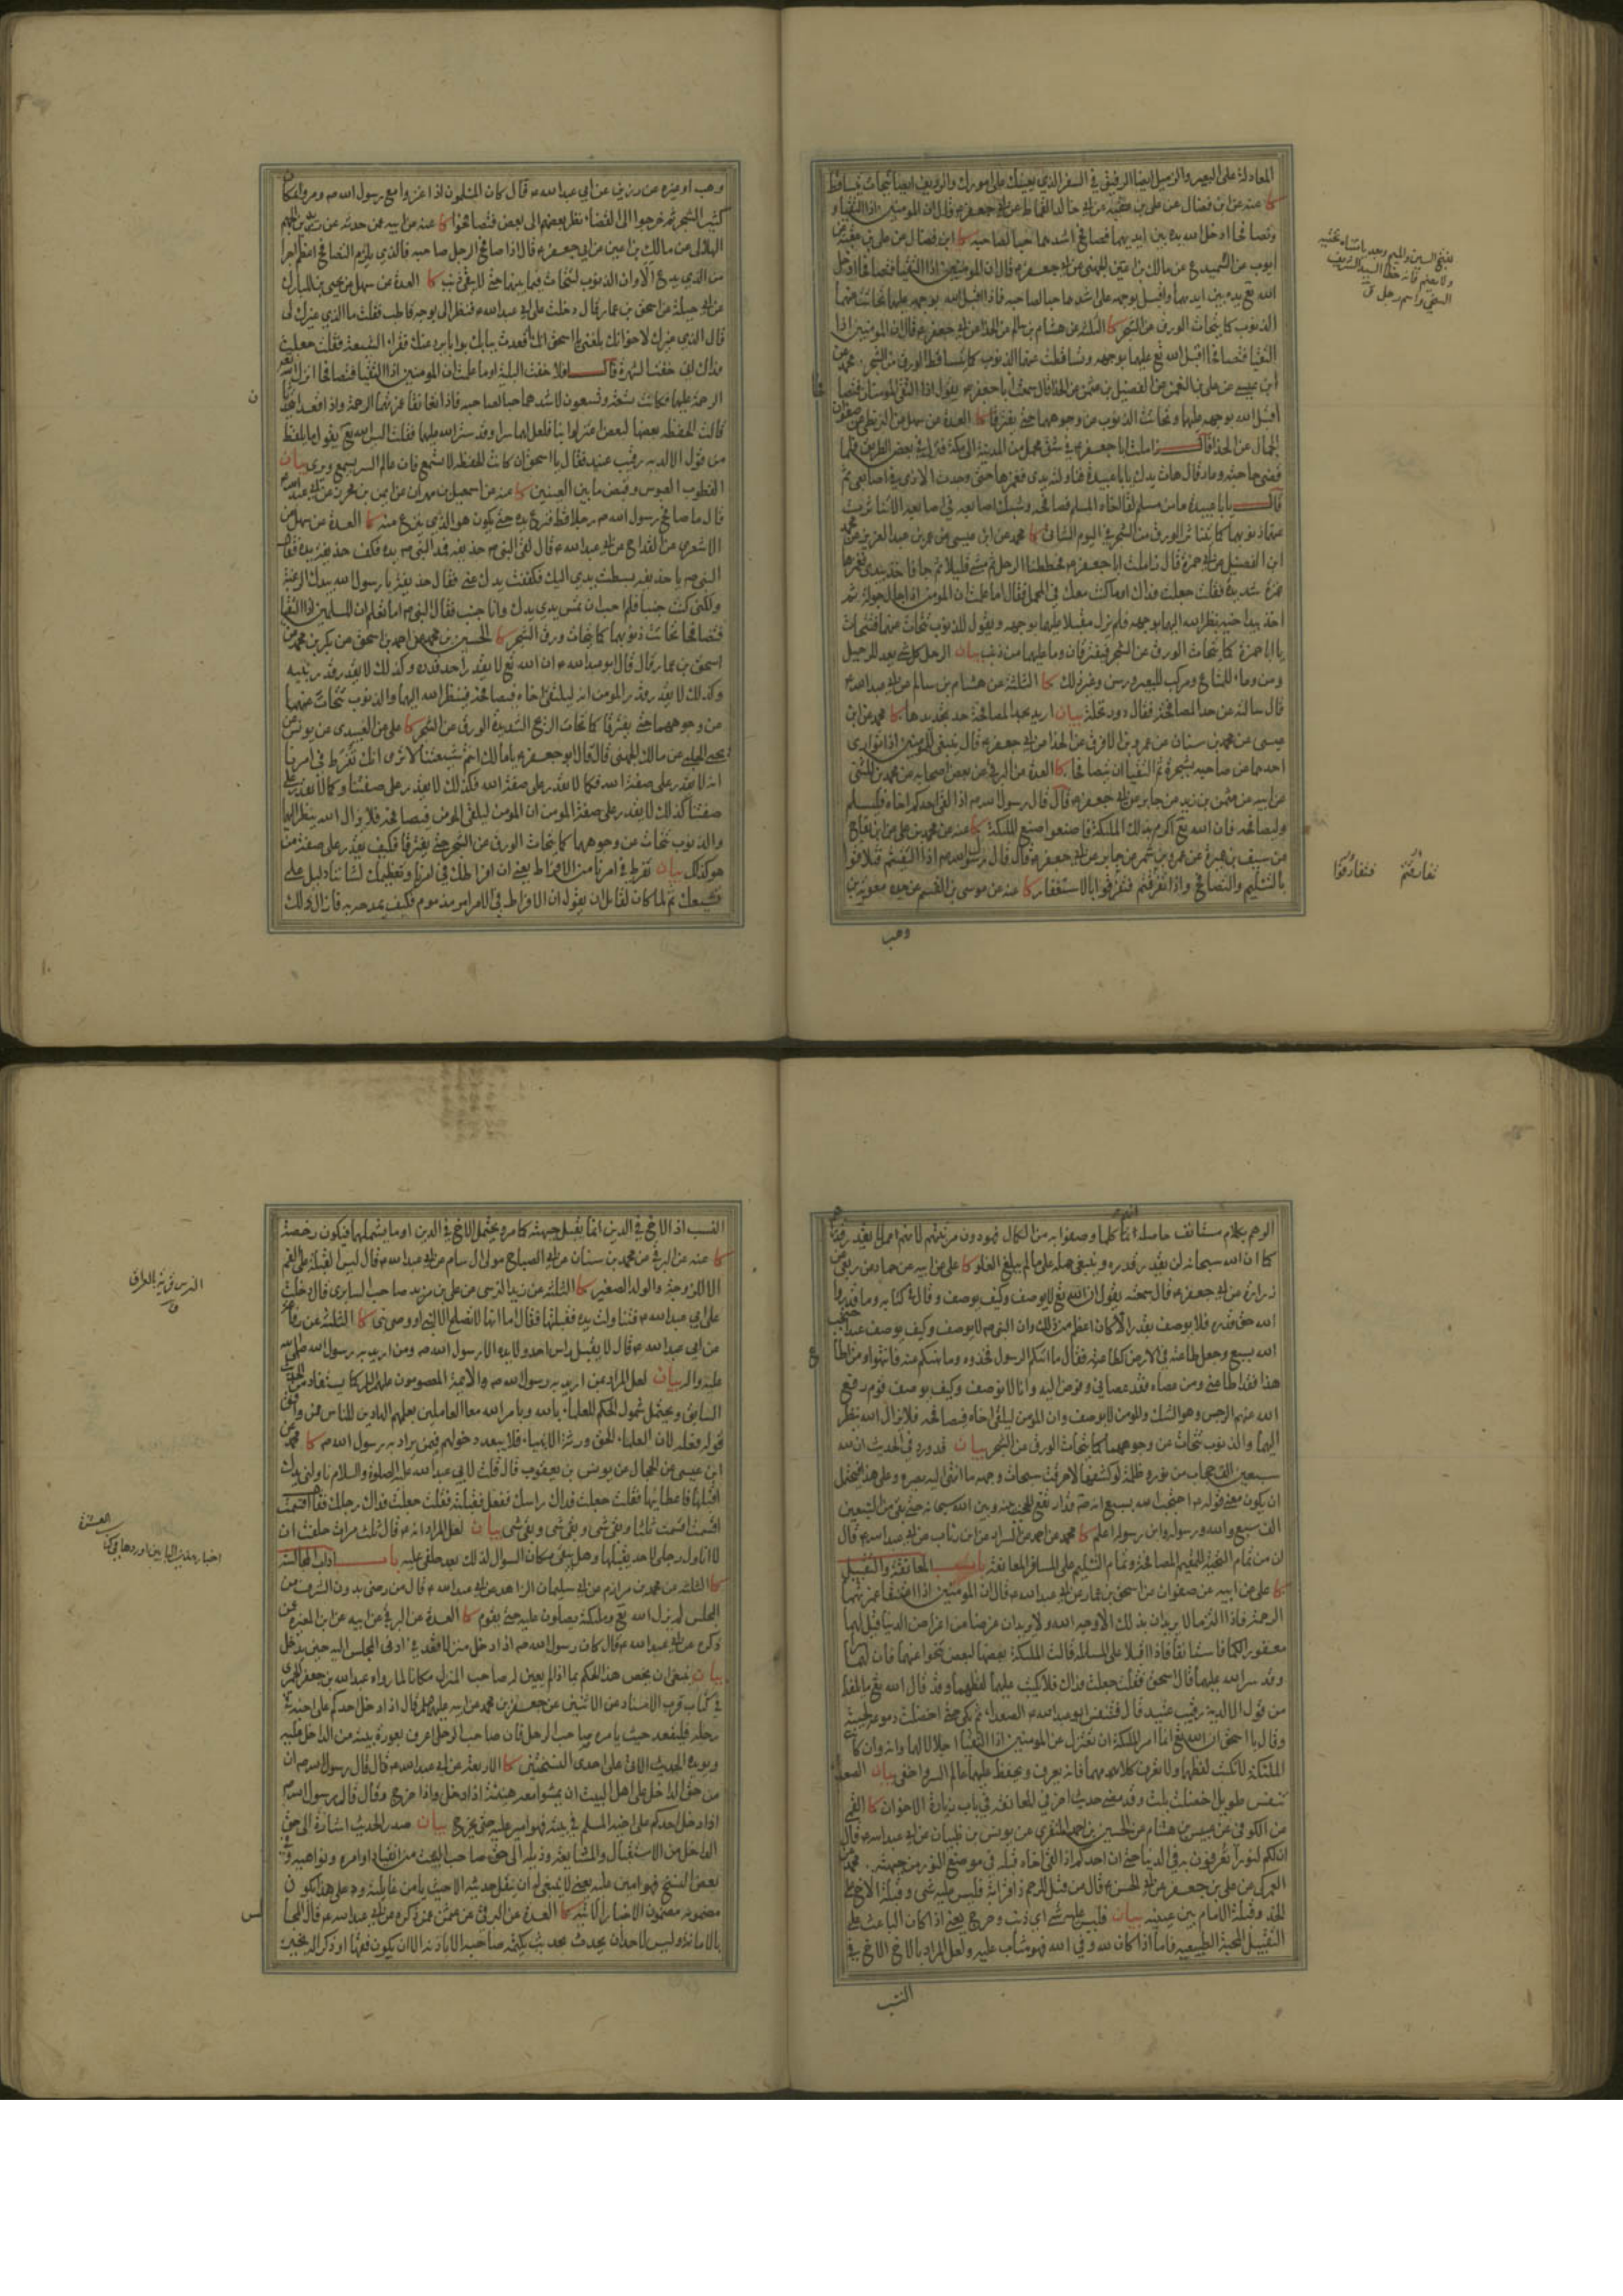 المعادلة على البعير والزميل ايضا الرفيق في السفر الذي يعينك على امورك والرديف ايضا تتحات تتساقط
كا عنه عن ابن فضال عن علي بن عقبة عن ابي خالد القماط عن ابي جعفر ع قال ان المومنين اذا التقيا و
وتصافحا ادخل الله يده بين ايديهما فصافح اشدهما حبا لصاحبه كا ابن فضال عن علي بن عقبة عن
ايوب عن السميدع عن مالك بن اعين الجهني عن ابي جعفر ع قال ان المومنين اذا التقيا فتصافحا ادخل
الله تع يده بين ايديهما واقبل بوجهه على اشدهما حبا لصاحبه فاذا اقبل الله بوجهه عليهما تحاتت عنهما
الذنوب كما يتحات الورق من الشجر كا الثلثة عن هشام بن سالم عن الحذا عن ابي جعفر ع قال ان المومنين اذا
التقيا فتصافحا اقبل الله تع عليهما بوجهه وتساقطت عنهما الذنوب كما يتساقط الورق من الشجر محمد عن
ابن عيسى عن علي بن النعمن عن الفضيل بن عثمن عن الحذا قال سمعت ابا جعفر ع يقول اذا التقى المومنان فتصافحا
اقبل الله بوجهه عليهما وتحاتت الذنوب عن وجوههما حتى يفترقا كا العدة عن سهل عن البزنطي عن صفوان
الجمال عن الحذا قال زاملت ابا جعفر ع في شق محمل من المدينة الى مكة فنزل في بعض الطريق فلما
قضى حاجته وعاد قال هات يدك يا با عبيدة فناولته يدي فغمزها حتى وجدت الاذى في اصابعي ثم
قال يا با عبيدة ما من مسلم لقي اخاه المسلم فصافحه وشبك اصابعه في اصابعه الا تناثرت
عنهما ذنوبهما كما يتناثر الورق من الشجر في اليوم الشاتي كا محمد عن ابن عيسى عن عمر بن عبد العزيز عن محمد
ابن الفضيل عن ابي حمزة قال زاملت ابا جعفر ع فحططنا الرحل ثم مشى قليلا ثم جا فاخذ بيدي فغمزها
غمزة شديدة فقلت جعلت فداك او ما كنت معك في المحمل فقال اما علمت ان المومن اذا جال جولة ثم
اخذ بيد اخيه نظر الله اليهما بوجهه فلم يزل مقبلا عليهما بوجهه ويقول للذنوب تتحات عنهما فتتحات
يا ابا حمزة كما يتحات الورق عن الشجر فيفترقان وما عليهما من ذنب بيان الرحل كل شئ يعد للرحيل
من وعاء للمتاع ومركب للبعير ورسن وغير ذلك كا الثلثة عن هشام بن سالم عن ابي عبد الله ع
قال سالته عن حد المصافحة فقال دور نخلة بيان اريد بحد المصافحة حد تجديدها كا محمد عن ابن
عيسى عن محمد بن سنان عن عمرو بن الافرق عن الحذا عن ابي جعفر ع قال ينبغي للمومنين اذا توارى
احدهما عن صاحبه بشجرة ثم التقيا ان يتصافحا كا العدة عن البرقي عن بعض اصحابه عن محمد بن المثنى
عن ابيه عن عثمن بن زيد عن جابر عن ابي جعفر ع قال قال رسول الله ص اذا لقي احدكم اخاه فليسلم
وليصافحه فان الله تع اكرم بذلك الملئكة فاصنعوا صنع الملئكة كا عنه عن محمد بن علي عن ابن بقاح
عن سيف بن عميرة عن عمرو بن شمر عن جابر عن ابي جعفر ع قال قال رسول الله ص اذا التقيتم فتلاقوا
بالتسليم والتصافح واذا تفرقتم فتفرقوا بالاستغفار كا عنه عن موسى بن القسم عن جده معوية بن
وهب
تفارقتم فتفارقوا
وهب او غيره عن رزين عن ابي عبد الله ع قال كان المسلمون اذا غزوا مع رسول الله ص ومروا بمكان
كثير الشجر ثم خرجوا الى الفضاء نظر بعضهم الى بعض فتصافحوا كا عنه عن ابيه عمن حدثه عن زيد بن الجهم
الهلالي عن مالك بن اعين عن ابي جعفر ع قال اذا صافح الرجل صاحبه فالذي يلزم التصافح اعظم اجرا
من الذي يدع الا وان الذنوب لتتحات فيما بينهما حتى لا يبقى ذنب كا العدة عن سهل عن يحيى بن المبارك
عن ابن جبلة عن اسحق بن عمار قال دخلت على ابي عبد الله ع فنظر الي بوجه قاطب فقلت ما الذي غيرك لي
قال الذي غيرك لاخوانك بلغني يا اسحق انك اقعدت ببابك بوابا يرد عنك فقراء الشيعة فقلت جعلت
فداك اني خفت الشهرة قال افلا خفت البلية او ما علمت ان المومنين اذا التقيا فتصافحا انزل الله
الرحمة عليهما فكانت تسعة وتسعون لاشدهما حبا لصاحبه فاذا تعانقا غمرتهما الرحمة واذا قعدا يتحدثان
قالت الحفظة بعضها لبعض اعتزلوا بنا فلعل لهما سرا وقد ستر الله عليهما فقلت اليس الله تع يقول ما يلفظ
من قول الا لديه رقيب عتيد فقال يا اسحق ان كانت الحفظة لا تسمع فان عالم السر يسمع ويرى بيان
القطوب العبوس وقبض ما بين العينين كا عنه عن اسمعيل بن مهران عن ايمن بن محرز عن ابي عبد الله ع
قال ما صافح رسول الله ص رجلا قط فنزع يده حتى يكون هو الذي ينزع منه كا العدة عن سهل عن
الاشعري عن القداح عن ابي عبد الله ع قال لقي النبي ص حذيفة فمد النبي ص يده فكف حذيفة يده فقال
النبي ص يا حذيفة بسطت يدي اليك فكففت يدك عني فقال حذيفة يا رسول الله بيدك الرغبة
ولكني كنت جنبا فلم احب ان تمس يدي يدك وانا جنب فقال النبي ص اما تعلم ان المسلمين اذا التقيا
فتصافحا تحاتت ذنوبهما كما يتحات ورق الشجر كا الحسين بن محمد عن احمد بن اسحق عن بكر بن محمد عن
اسحق بن عمار قال قال ابو عبد الله ع ان الله تع لا يقدر احد قدره وكذلك لا يقدر قدر نبيه
وكذلك لا يقدر قدر المومن انه ليلقى اخاه فيصافحه فينظر الله اليهما والذنوب تتحات عنهما
من وجوههما حتى يفترقا كما تحات الريح الشديدة الورق عن الشجر كا علي عن العبيدي عن يونس عن
يحيى الحلبي عن مالك الجهني قال قال ابو جعفر ع يا مالك انتم شيعتنا الا ترى انك تفرط في امرنا
انه لا يقدر على صفة الله فكما لا يقدر على صفة الله فكذلك لا يقدر على صفتنا وكما لا يقدر على
صفتنا كذلك لا يقدر على صفة المومن ان المومن ليلقى المومن فيصافحه فلا يزال الله ينظر اليهما
والذنوب تتحات عن وجوههما كما يتحات الورق عن الشجر حتى يفترقا فكيف يقدر على صفة من
هو كذلك بيان تفرط في امرنا من الافراط يعني ان افراطك في امرنا وتعظيمك لشاننا دليل على
تشيعك ثم لما كان لقائل ان يقول ان الافراط في الامر مذموم فكيف يمدحه به فازال ذلك
الوهم بكلام مستانف حاصله انا كلما وصفوا به من الكمال فهو دون مرتبتهم لانهم ممن لا يقدر قدره
كما ان الله سبحانه لن يقدر قدره وينبغي حمله على ما لم يبلغ الغلو كا علي عن ابيه عن حماد عن ربعي عن
زرارة عن ابي جعفر ع قال سمعته يقول ان الله تع لا يوصف وكيف يوصف وقال في كتابه وما قدروا
الله حق قدره فلا يوصف بقدر الا كان اعظم من ذلك وان النبي ص لا يوصف وكيف يوصف عبد احتجب
الله بسبع وجعل طاعته في الارض كطاعته فقال ما اتيكم الرسول فخذوه وما نهيكم عنه فانتهوا ومن اطاع
هذا فقد اطاعني ومن عصاه فقد عصاني وفوض اليه وانا لا نوصف وكيف يوصف قوم رفع
الله عنهم الرجس وهو الشك والمومن لا يوصف وان المومن ليلقى اخاه فيصافحه فلا يزال الله ينظر
اليهما والذنوب تتحات عن وجوههما كما يتحات الورق من الشجر بيان قد ورد في الحديث ان لله
سبعين الف حجاب من نور وظلمة لو كشفها لاحرقت سبحات وجهه ما انتهى اليه بصره وعلى هذا فيحتمل
ان يكون معنى قوله ع احتجب الله بسبع انه ص قد ارتفع الحجب بينه وبين الله سبحانه حتى بقي من السبعين
الف سبع والله ورسوله وابن رسوله اعلم كا محمد عن احمد عن السراد عن ابن رئاب عن ابي عبد الله ع قال
ان من تمام التحية للمقيم المصافحة وتمام التسليم على المسافر المعانقة باب المعانقة والتقبيل
كا علي عن ابيه عن صفوان عن اسحق بن عمار عن ابي عبد الله ع قال ان المومنين اذا اعتنقا غمرتهما
الرحمة فاذا التزما لا يريدان بذلك الا وجه الله ولا يريدان غرضا من اغراض الدنيا قيل لهما
مغفور لكما فاستانفا فاذا اقبلا على المسائلة قالت الملئكة بعضها لبعض تنحوا عنهما فان لهما سرا
وقد ستر الله عليهما قال اسحق فقلت جعلت فداك فلا يكتب عليهما لفظهما وقد قال الله تع ما يلفظ
من قول الا لديه رقيب عتيد قال فتنفس ابو عبد الله ع الصعداء ثم بكى حتى اخضلت دموعه لحيته
وقال يا اسحق ان الله تع انما امر الملئكة ان تعتزل عن المومنين اذا التقيا اجلالا لهما وانه وان كانت
الملئكة لا تكتب لفظهما ولا تعرف كلامهما فانه يعرفه ويحفظه عليهما عالم السر واخفى بيان الصعداء
تنفس طويل اخضلت بلت وقد مضى حديث اخر في المعانقة في باب زيارة الاخوان كا القمي
عن الكوفي عن عبيس بن هشام عن الحسين بن احمد المنقري عن يونس بن ظبيان عن ابي عبد الله ع قال
ان لكم لنورا تعرفون به في الدنيا حتى ان احدكم اذا لقي اخاه قبله في موضع النور من جبهته محمد عن
العمركي عن علي بن جعفر عن ابي الحسن ع قال من قبل للرحم ذا قرابة فليس عليه شئ وقبلة الاخ على
الخد وقبلة الامام بين عينيه بيان فليس عليه شئ اي ذنب وحرج يعني اذا كان الباعث على
التقبيل المحبة الطبيعية فاما اذا كان لله وفي الله فهو مثاب عليه ولعل المراد بالاخ الاخ في
النسب
النسب اذ الاخ في الدين انما يقبل جبهته كما مر ويحتمل الاخ في الدين او ما يشملهما فيكون رخصة
كا عنه عن البرقي عن محمد بن سنان عن ابي الصباح مولى ال سام عن ابي عبد الله ع قال ليس القبلة على الفم
الا للزوجة والولد الصغير كا الثلثة عن زيد النرسي عن علي بن مزيد صاحب السابري قال دخلت
على ابي عبد الله ع فتناولت يده فقبلتها فقال اما انها لا تصلح الا لنبي او وصي نبي كا الثلثة عن رفاعة
عن ابي عبد الله ع قال لا يقبل راس احد ولا يده الا رسول الله ص ومن اريد به رسول الله صلى الله
عليه واله بيان لعل المراد بمن اريد به رسول الله ص الائمة المعصومون عليهم السلام كما يستفاد من الحديث
السابق ويحتمل شمول الحكم للعلماء بالله وبامر الله معا العاملين بعلمهم الهادين للناس ممن وافق
قوله فعله لان العلماء الحق ورثة الانبياء فلا يبعد دخولهم فيمن يراد به رسول الله ص كا محمد عن
ابن عيسى عن الحجال عن يونس بن يعقوب قال قلت لابي عبد الله عليه الصلوة والسلام ناولني يدك
اقبلها فاعطانيها فقلت جعلت فداك راسك ففعل فقبلته فقلت جعلت فداك رجلاك فقال اقسمت
اقسمت اقسمت ثلثا وبقي شئ وبقي شئ وبقي شئ بيان لعل المراد انه ع قال ثلث مرات حلفت ان
لا اناول رجلي لاحد يقبلها وهل يبقى مكان السوال لذلك بعد حلفي عليه باب اداب المجالسة
كا الثلثة عن محمد بن مرازم عن ابي سليمان الزاهد عن ابي عبد الله ع قال من رضي بدون الشرف من
المجلس لم يزل الله تع وملئكته يصلون عليه حتى يقوم كا العدة عن البرقي عن ابيه عن ابن المغيرة عمن
ذكره عن ابي عبد الله ع قال كان رسول الله ص اذا دخل منزلا قعد في ادنى المجلس اليه حين يدخل
بيان ينبغي ان يخص هذا الحكم بما اذا لم يعين له صاحب المنزل مكانا لما رواه عبد الله بن جعفر الحميري
في كتاب قرب الاسناد عن الاثنين عن جعفر بن محمد عن ابيه عليهما السلم قال اذا دخل احدكم على اخيه في
رحله فليقعد حيث يامره صاحب الرحل فان صاحب الرحل اعرف بعورة بيته من الداخل عليه
ويويده الحديث الاتي على احدى النسختين كا الاربعة عن ابي عبد الله ع قال قال رسول الله ص ان
من حق الداخل على اهل البيت ان يمشوا معه هنيئة اذا دخل واذا خرج وقال قال رسول الله ص
اذا دخل احدكم على اخيه المسلم في بيته فهو امير عليه حتى يخرج بيان صدر الحديث اشارة الى حق
الداخل من الاستقبال والمشايعة وذيله الى حق صاحب البيت من انقياد اوامره ونواهيه وفي
بعض النسخ فهو امين عليه يعني لا ينبغي له ان ينقل حديثه الا حيث يامن غائلته وعلى هذا يكون
مضمونه مضمون الاخبار الاتية كا العدة عن البرقي عن عثمن عمن ذكره عن ابي عبد الله ع قال المجالس
بالامانة وليس لاحد ان يحدث بحديث يكتمه صاحبه الا باذنه الا ان يكون فقها او ذكرا له بخير
النرس قرية بالعراق